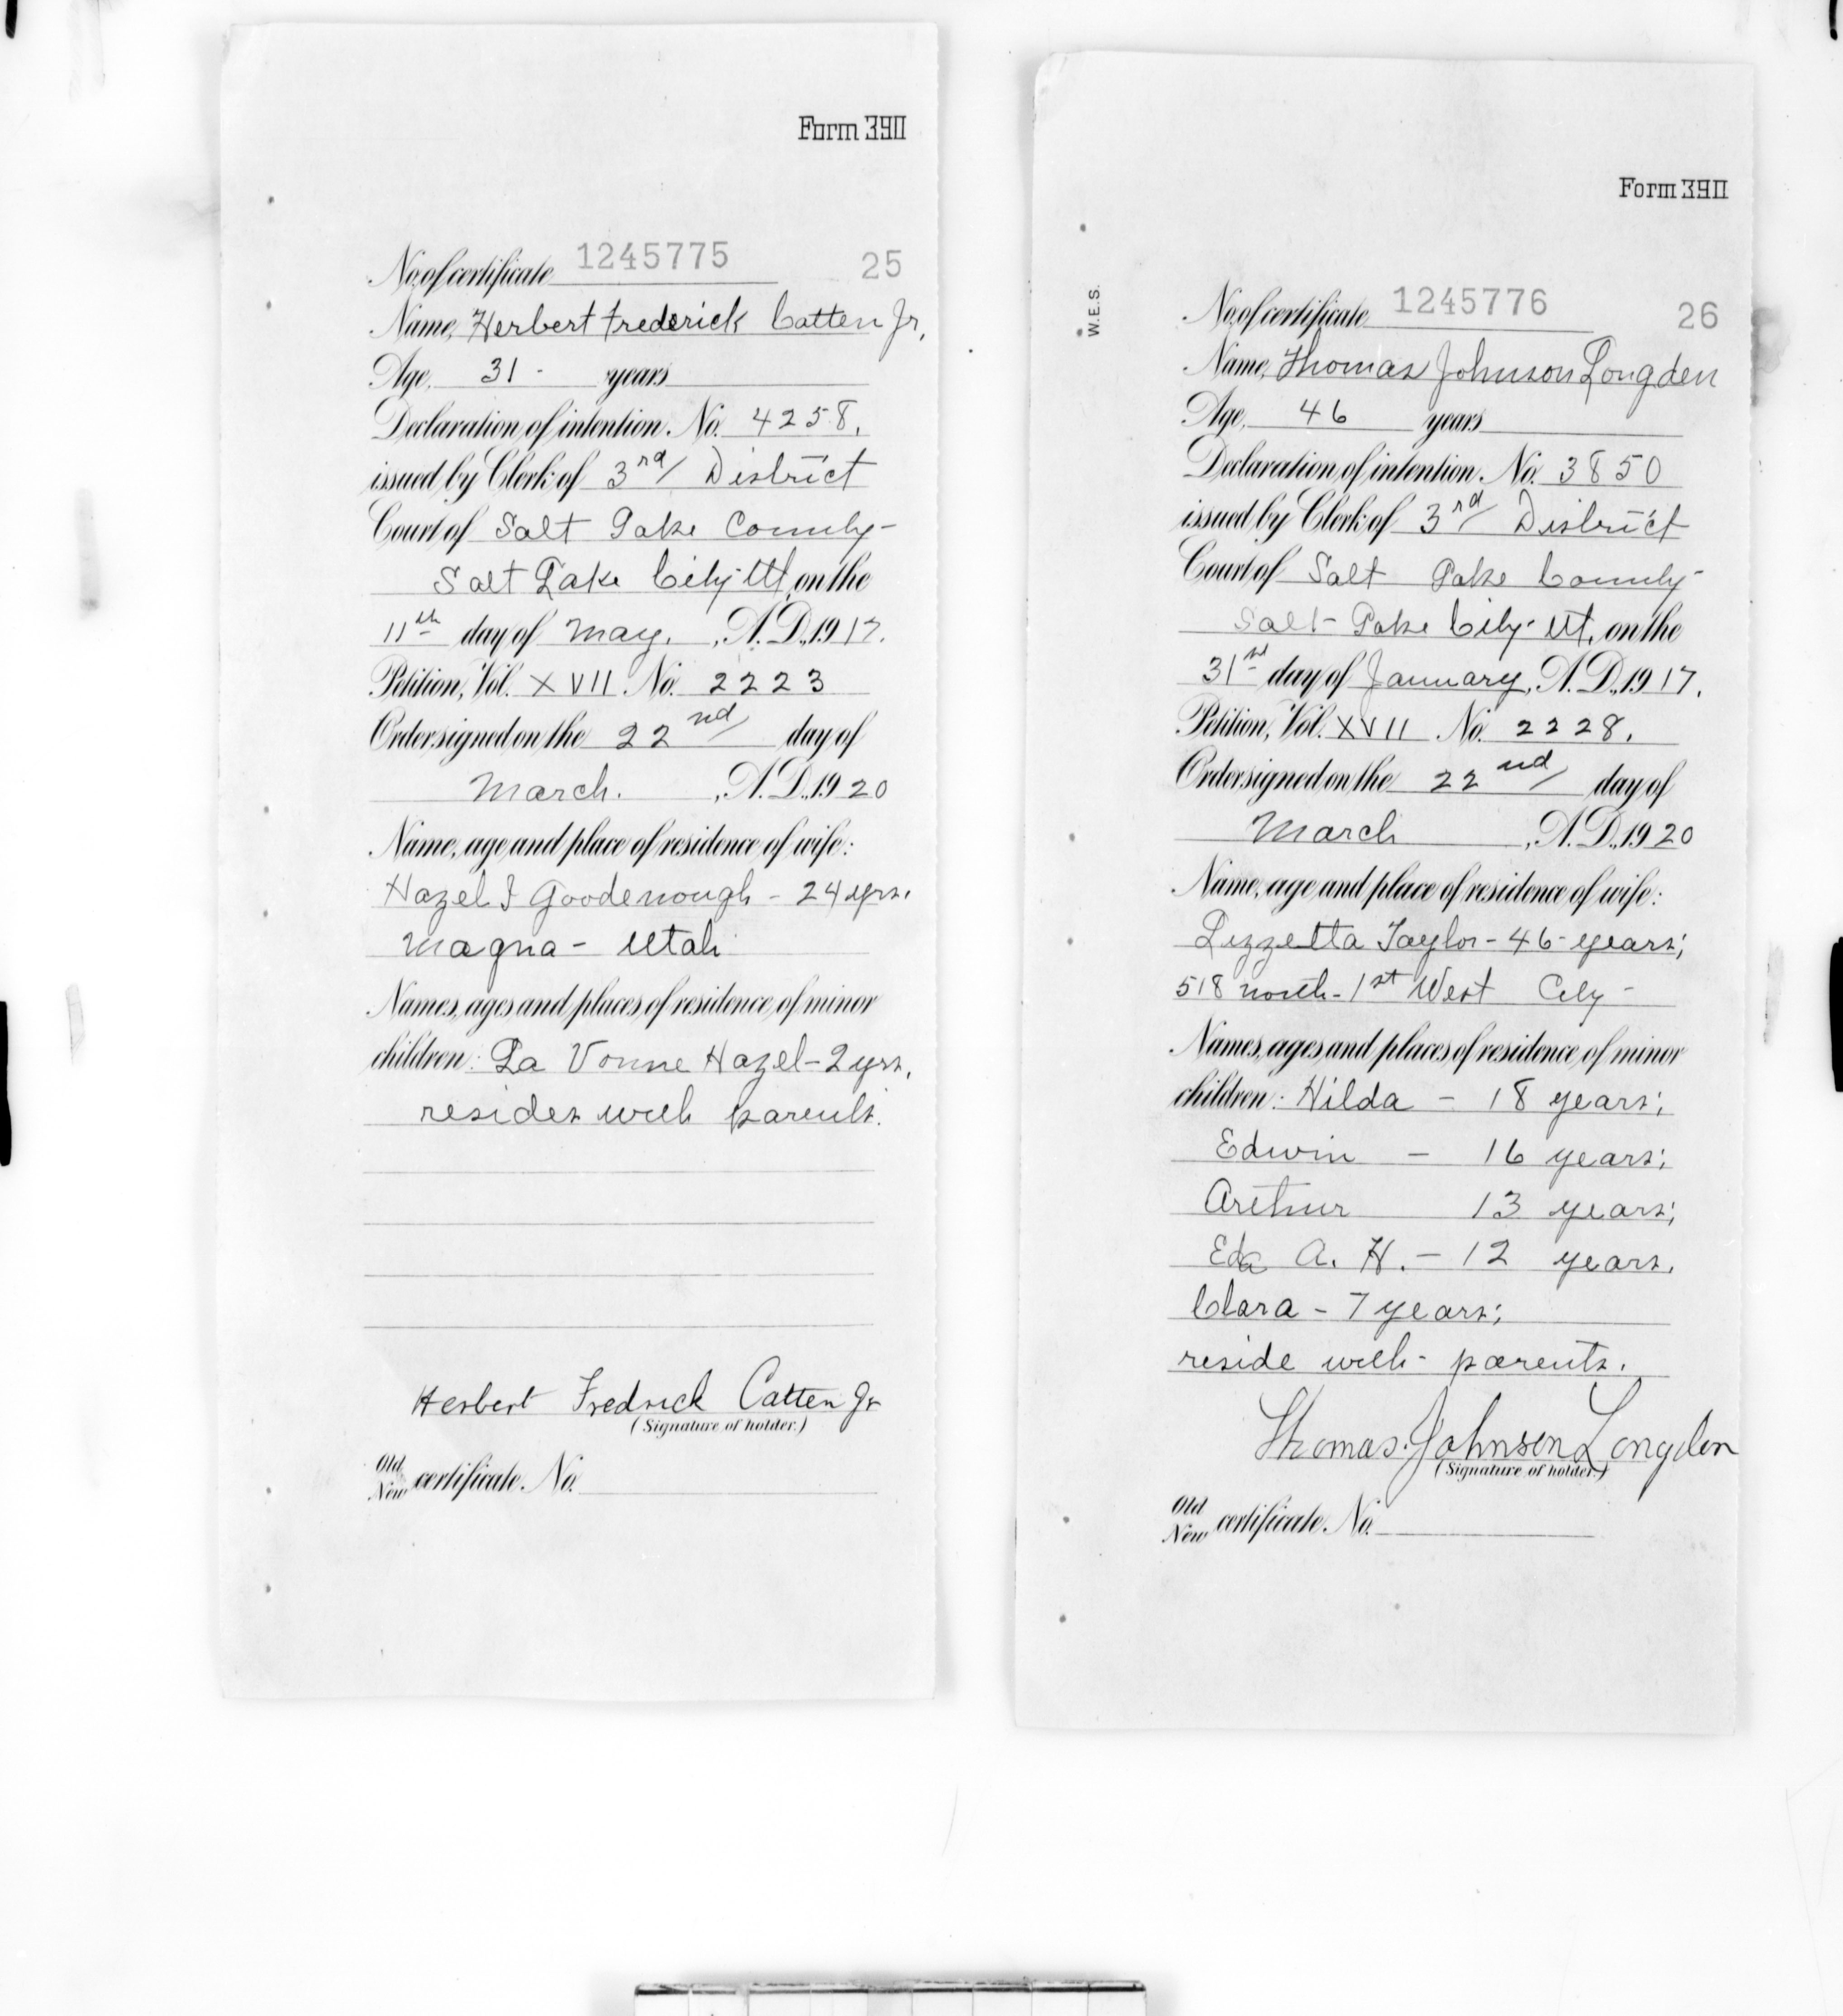 Form 390
No. of certificate 1245775 25
Name, Herbert Frederick Catten Jr,
Age, 31 - years
Declaration of intention, No. 4258,
issued by Clerk of 3rd District
Court of Salt Lake County -
Salt Lake City - Ut, on the
11th day of May, , A.D., 1917.
Petition, Vol. XVII No. 2223
Order signed on the 22nd day of
March. , A.D., 1920
Name, age and place of residence of wife:
Hazel I Goodenough - 24 yrs.
Magna - Utah
Names, ages and places of residence of minor
children: La Vonne Hazel - 2 yrs,
resides with parents.
Herbert Fredrick Catten Jr
(Signature of holder.)
Old
New certificate, No.
Form 390
W.E.S.
No. of certificate, 1245776 26
Name, Thomas Johnson Longden
Age, 46 years
Declaration of intention, No. 3850
issued by Clerk of 3rd District
Court of Salt Lake County -
Salt - Lake City - Ut, on the
31st day of January, A.D., 1917,
Petition, Vol. XVII No. 2228,
Order signed on the 22nd day of
March , A.D., 1920
Name, age and place of residence of wife:
Lizzetta Taylor - 46 - years;
518 north - 1st West City -
Names, ages and places of residence of minor
children: Hilda - 18 years;
Edwin - 16 years;
Arthur 13 years;
Eda A. H. - 12 years,
Clara - 7 years;
reside with - parents.
Thomas Johnson Longden
(Signature of holder.)
Old
New certificate, No.